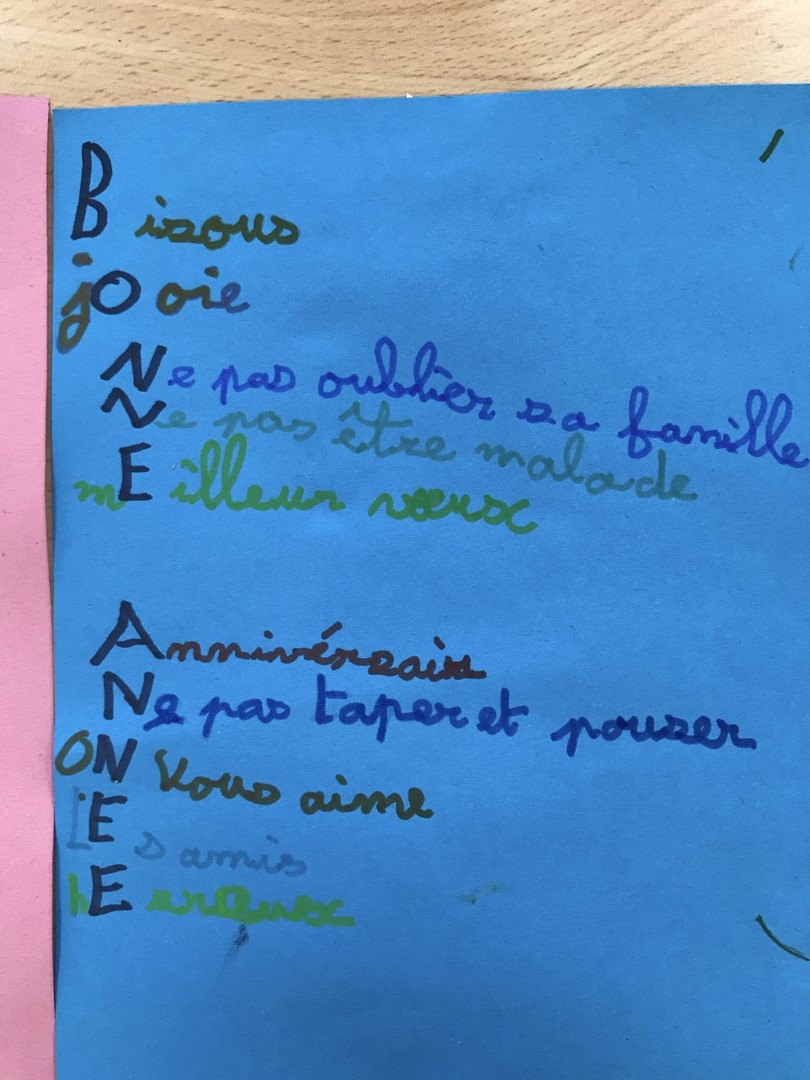 Bisous
jOoie
Ne pas oublier sa famille
Ne pas être malade
mEilleur vœux
Annivérsaire
Ne pas taper et pouser
ON vous aime
LEs amis
hEureux